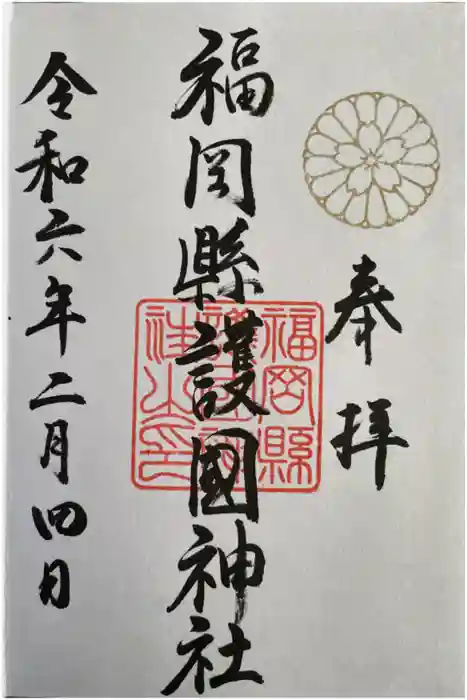 奉拝
福岡縣護國神社
福岡縣
社之印
令和六年二月四日